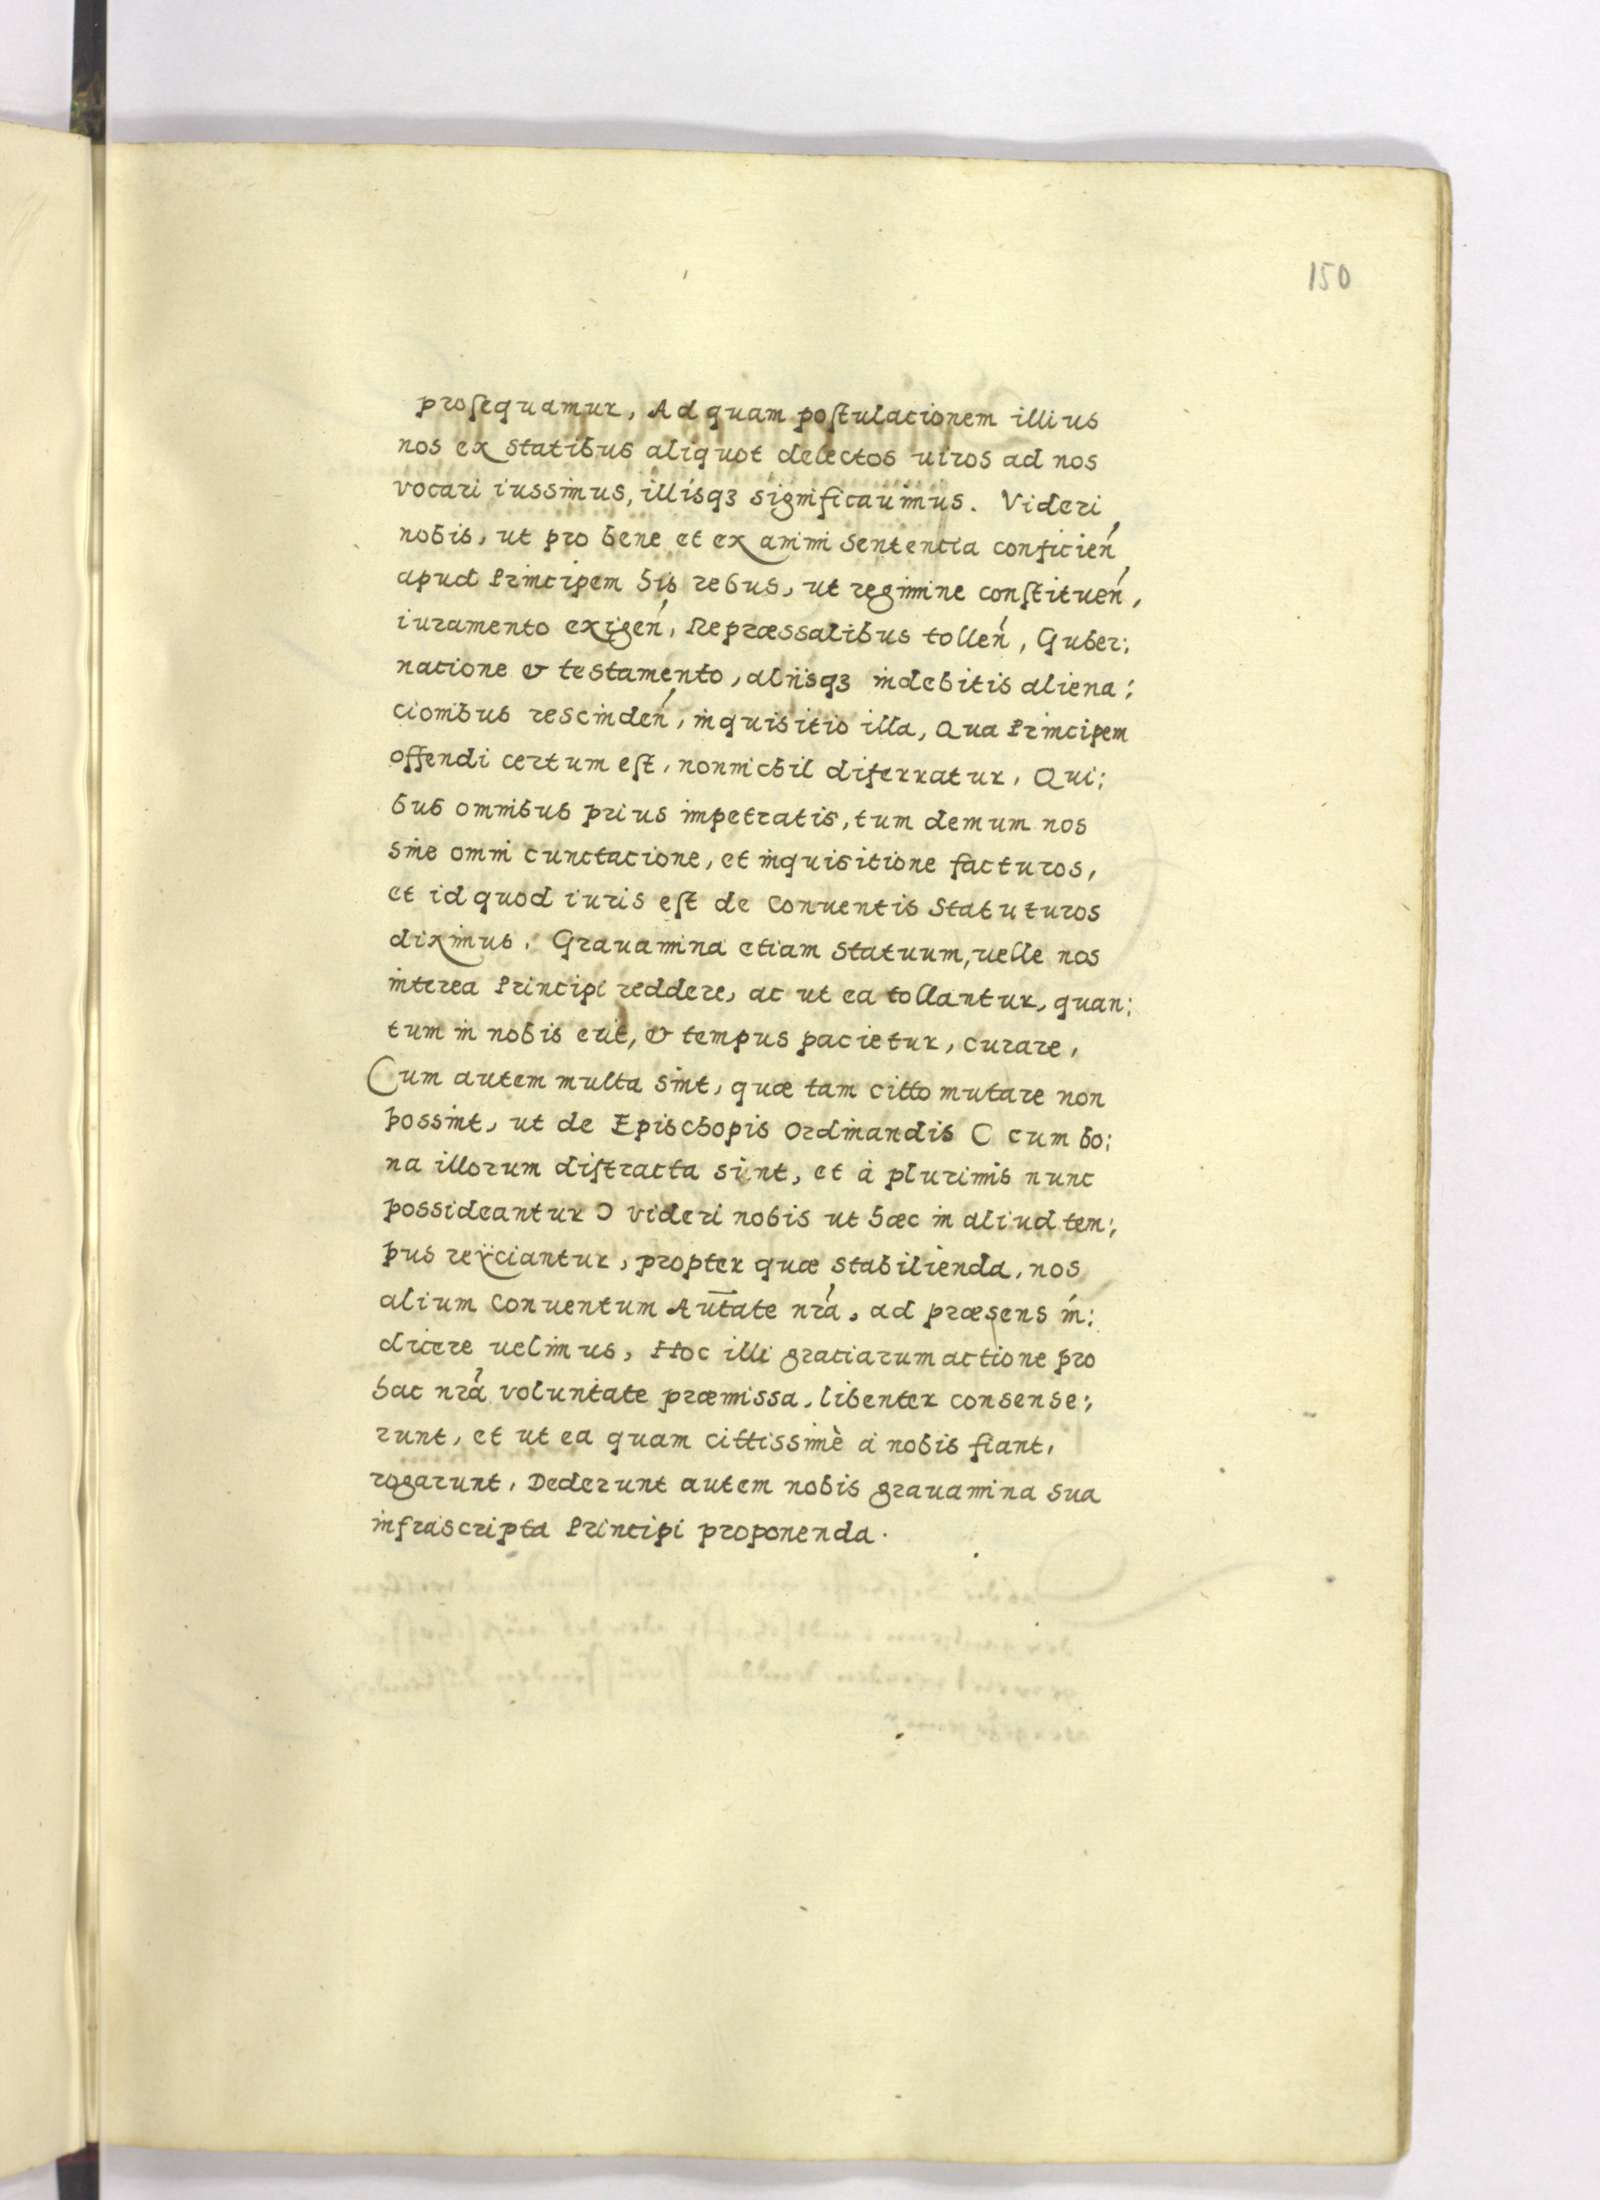 150
prosequamur, Ad quam postulacionem illius
nos ex statibus aliquot delectos uiros ad nos
vocari iussimus, illisqꝫ significauimus. Videri
nobis, ut pro bene et ex animi sententia conficień
apud Principem his rebus, ut regimine constitueń,
iuramento exigeń, Repræssalibus tolleń, Guber:
natione & testamento, alijsqꝫ indebitis aliena:
cionibus rescindeń, inquisitio illa, Qua Principem
offendi certum est, nonnichil diferratur, Qui:
bus omnibus prius impetratis, tum demum nos
sine omni cunctacione, et inquisitione facturos,
et id quod iuris est de Conuentis Statuturos
diximus. Grauamina etiam Statuum, uelle nos
interea Principi reddere, ac ut ea tollantur, quan:
tum in nobis erit, & tempus pacietur, curare,
Cum autem multa sint, quæ tam citto mutare non
possint, ut de Epischopis Ordinandis ( cum bo:
na illorum distracta sint, et à plurimis nunc
possideantur ) videri nobis ut hæc in aliud tem:
pus reÿciantur, propter quæ stabilienda, nos
alium Conuentum Aut̅ate nrá, ad præsens in:
dicere uelimus, Hoc illi gratiarum actione pro
hac nrá voluntate præmissa, libenter consense:
runt, et ut ea quam cittissimè à nobis fiant,
rogarunt, Dederunt autem nobis grauamina sua
infrascripta Principi proponenda.